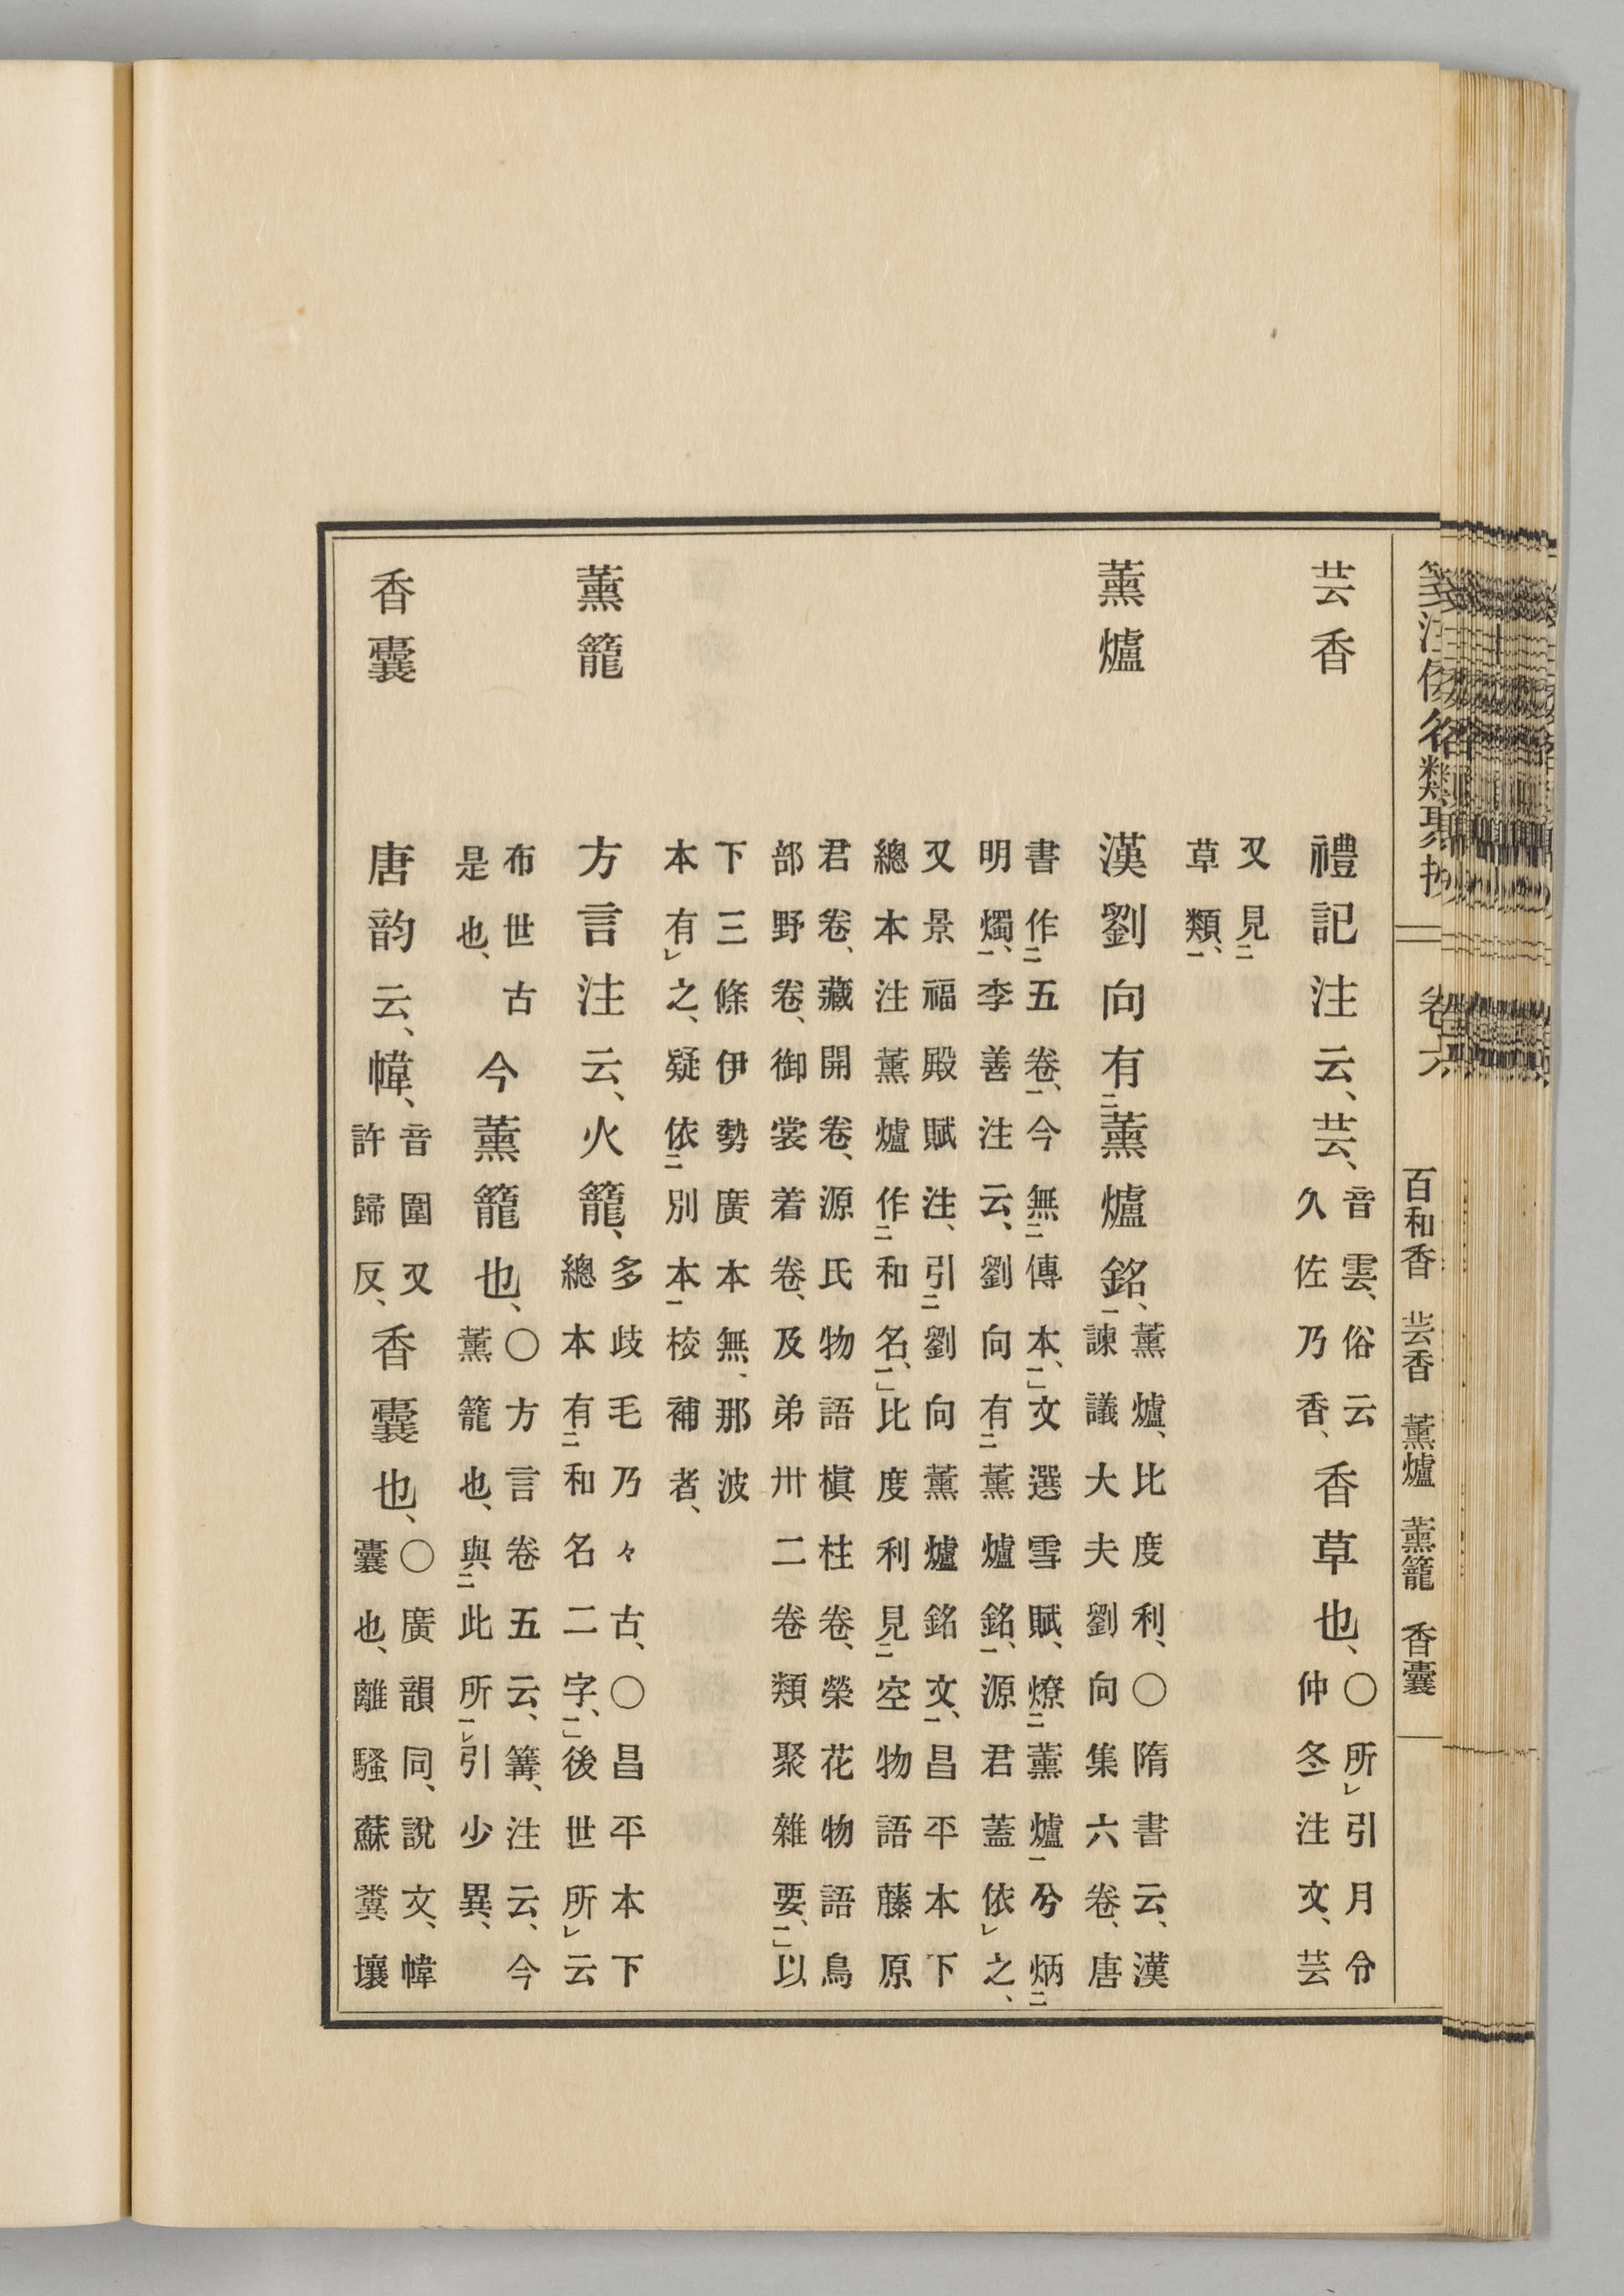 箋注倭名類聚抄 卷六 百和香 芸香 薰爐 薰籠 香囊
芸香 禮記注云、芸、
音雲、俗云
久佐乃香、
香草也、
○所レ引月令
仲冬注文、芸
又見二
草類、一
薰爐 漢劉向有二薰爐銘、一
薰爐、比度利、○隋書云、漢
諫議大夫劉向集六卷、唐
書作二五卷、一今無二傳本、一」文選雪賦、燎二薰爐一兮炳二
明燭、一李善注云、劉向有二薰爐銘、一源君蓋依レ之、
又景福殿賦注、引二劉向薰爐銘文、一昌平本下
總本注薰爐作二和名、一」比度利見二空物語藤原
君卷、藏開卷、源氏物語槇柱卷、榮花物語鳥
部野卷、御裳着卷、及弟卅二卷類聚雜要、一」以
下三條伊勢廣本無、那波
本有レ之、疑依二別本一校補者、
薰籠 方言注云、火籠、
多歧毛乃々古、○昌平本下
總本有二和名二字、一」後世所レ云
布世古
是也、
今薰籠也、
○方言卷五云、篝、注云、今
薰籠也、與二此所一レ引少異、
香囊 唐韵云、幃、
音圍又
許歸反、
香囊也、
○廣韻同、說文、幃
囊也、離騷蘇糞壤